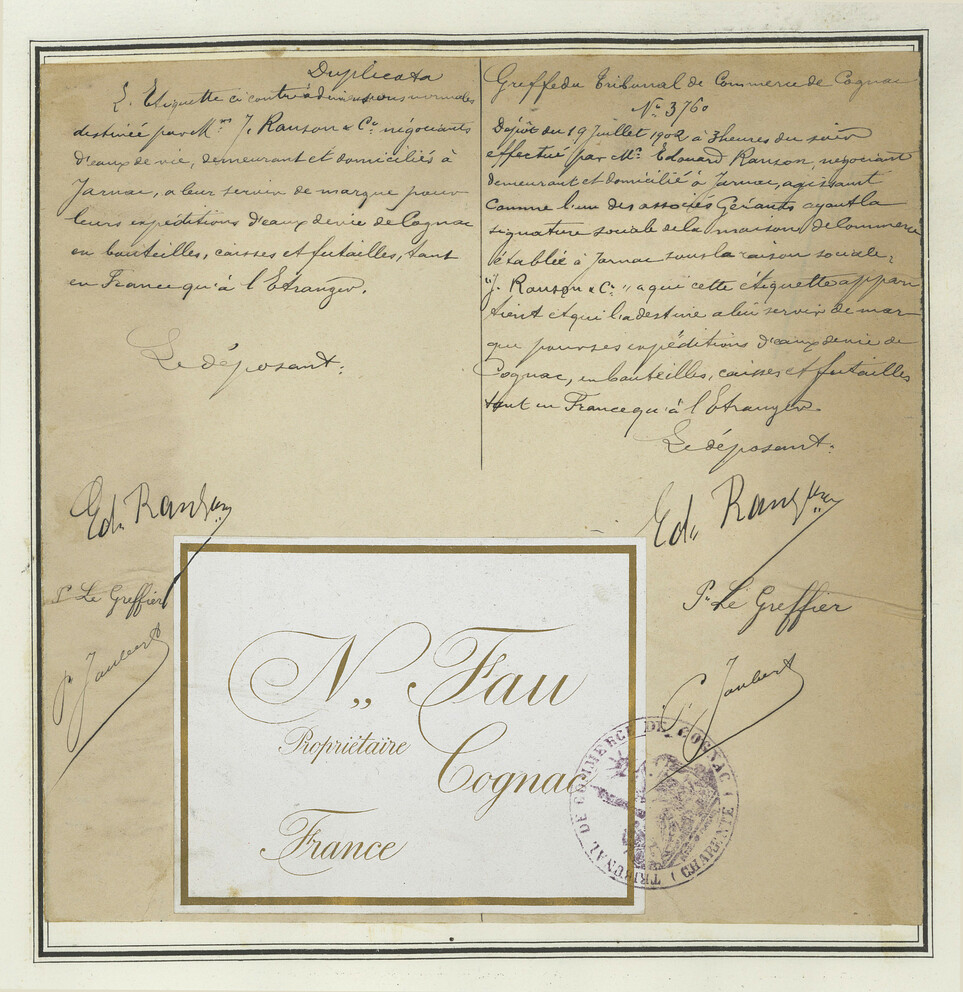 Duplicata
L'Etiquette ci contre à dimensions normales
destinée par Mrs J. Ranson & Cie négociants
d'eaux de vie, demeurant et domiciliés à
Jarnac, a leur servir de marque pour
leurs expéditions d'eaux de vie de Cognac
en bouteilles, caisses et futailles, tant
en France qu'à l'Etranger.
Le déposant:
Ed. Ranson
Pr Le Greffier
P. Joubert
Greffe du Tribunal de Commerce de Cognac
No 3760
Dépôt du 19 Juillet 1902 à 3 heures du soir
effectué par Mr Edouard Ranson, négociant
demeurant et domicilié à Jarnac, agissant
comme l'un des associés Gérants ayant la
signature sociale de la maison de Commerce
établie à Jarnac sous la raison sociale:
"J. Ranson & Cie" a qui cette étiquette appar
tient et qui la destine a lui servir de mar-
que pour ses expéditions d'eaux de vie de
Cognac, en bouteilles, caisses et futailles
tant en France qu'à l'Etranger.
Le déposant:
Ed. Ranson
Pr Le Greffier
P. Joubert
N,, Fau
Propriétaire
Cognac
France
TRIBUNAL DE COMMERCE DE COGNAC (CHARENTE)